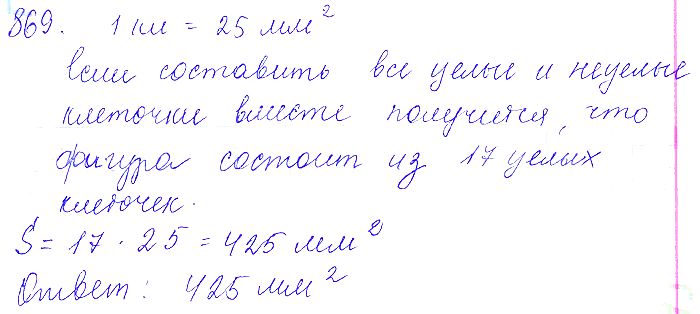 869. 1 кл = 25 мм²
Если составить все целые и нецелые
клеточки вместе получится, что
фигура состоит из 17 целых
клеточек.
S = 17 · 25 = 425 мм²
Ответ: 425 мм²